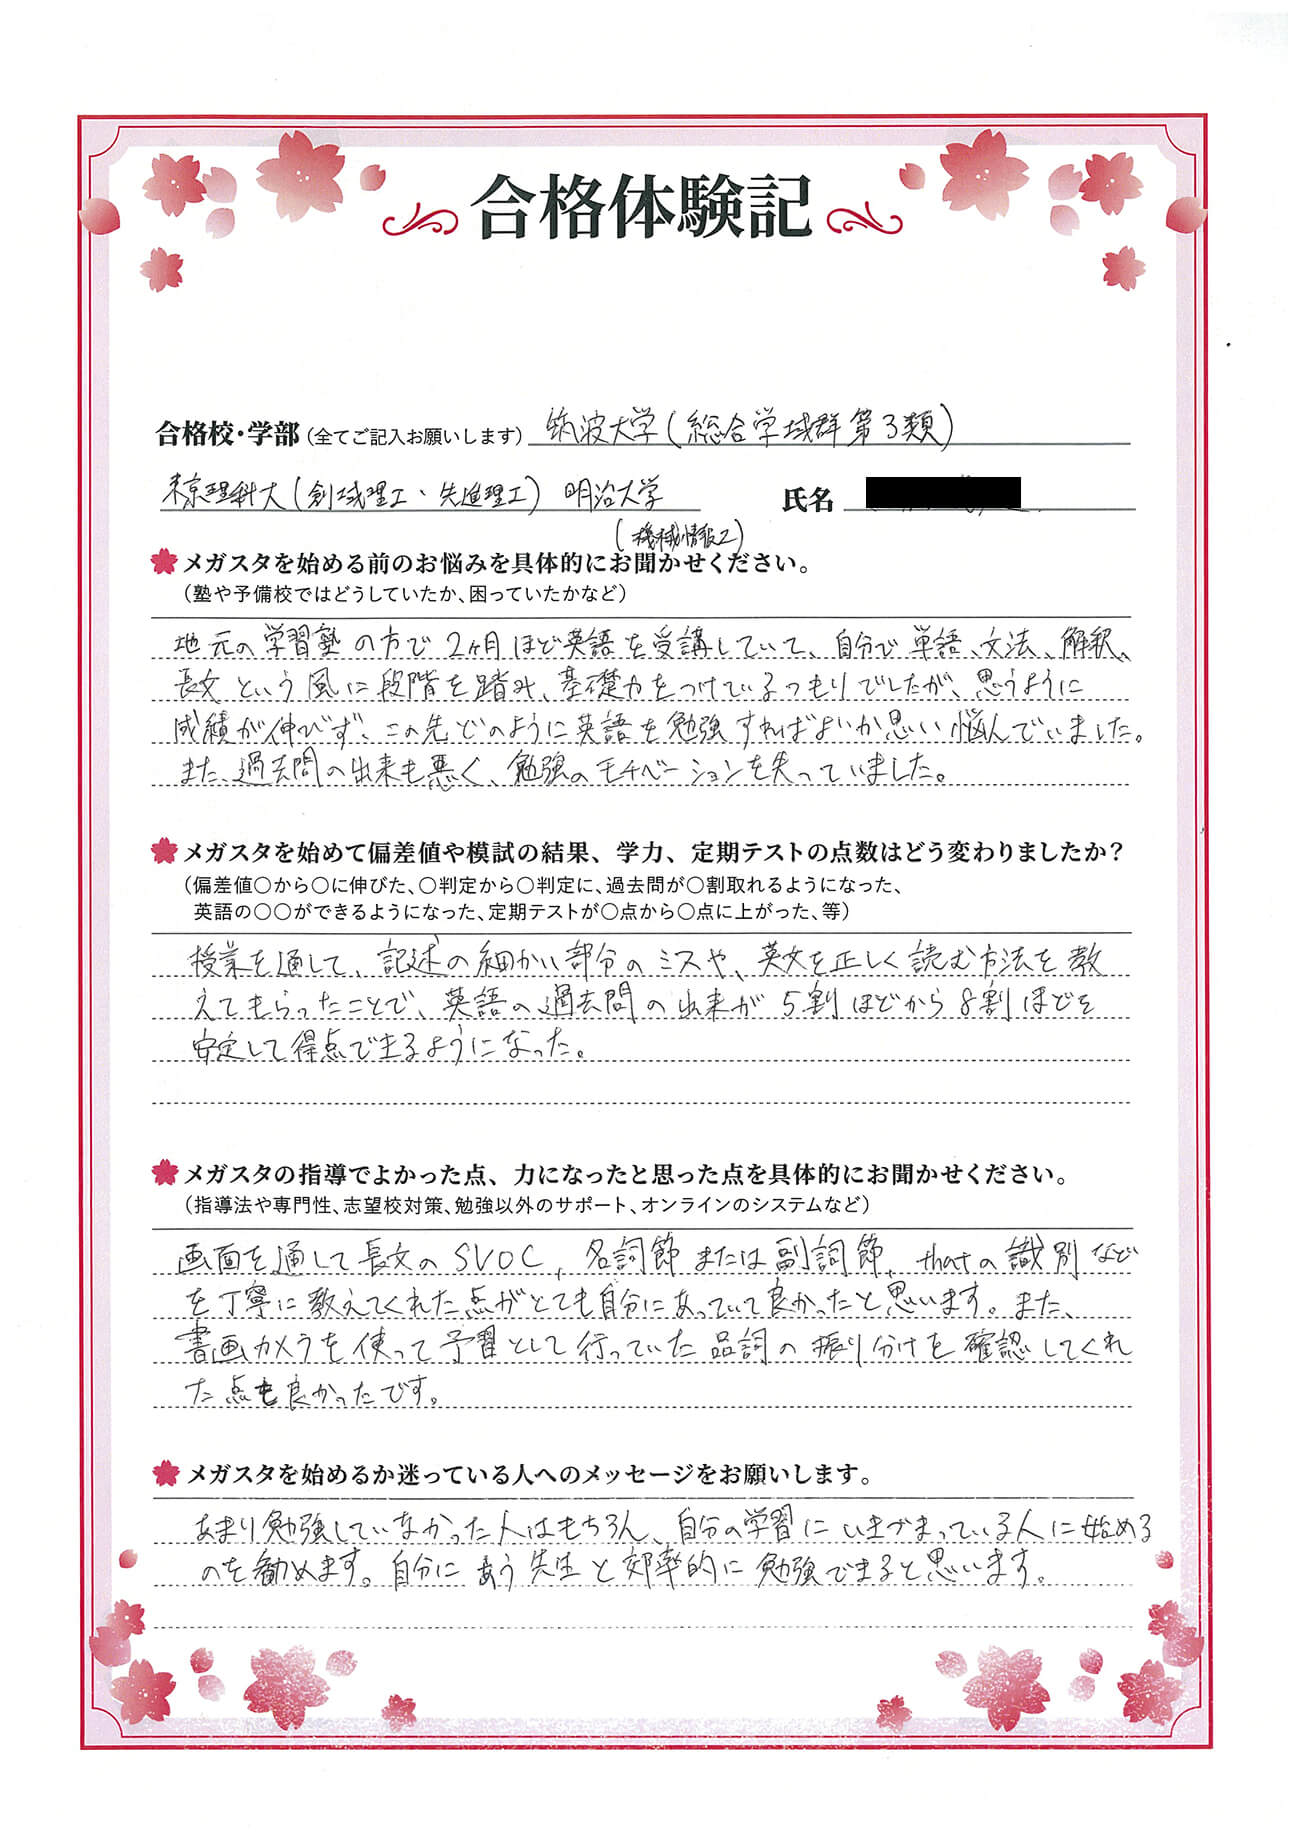 合格体験記
合格校・学部(全てご記入お願いします) 筑波大学(総合学域群第3類)
東京理科大(創域理工・先進理工) 明治大学 氏名
(機械情報工)
メガスタを始める前のお悩みを具体的にお聞かせください。
(塾や予備校ではどうしていたか、困っていたかなど)
地元の学習塾の方で2ヶ月ほど英語を受講していて、自分で単語、文法、解釈、
長文という風に段階を踏み、基礎力をつけているつもりでしたが、思うように
成績が伸びず、この先どのように英語を勉強すればよいか思い悩んでいました。
また、過去問の出来も悪く、勉強のモチベーションを失っていました。
メガスタを始めて偏差値や模試の結果、学力、定期テストの点数はどう変わりましたか?
(偏差値○から○に伸びた、○判定から○判定に、過去問が○割取れるようになった、
英語の○○ができるようになった、定期テストが○点から○点に上がった、等)
授業を通して、記述の細かい部分のミスや、英文を正しく読む方法を教
えてもらったことで、英語の過去問の出来が5割ほどから8割ほどを
安定して得点できるようになった。
メガスタの指導でよかった点、力になったと思った点を具体的にお聞かせください。
(指導法や専門性、志望校対策、勉強以外のサポート、オンラインのシステムなど)
画面を通して長文のSVOC、名詞節または副詞節、thatの識別など
を丁寧に教えてくれた点がとても自分にあっていて良かったと思います。また、
書画カメラを使って予習として行っていた品詞の振り分けを確認してくれ
た点も良かったです。
メガスタを始めるか迷っている人へのメッセージをお願いします。
あまり勉強していなかった人はもちろん、自分の学習にいきづまっている人に始める
のを勧めます。自分にあう先生と効率的に勉強できると思います。